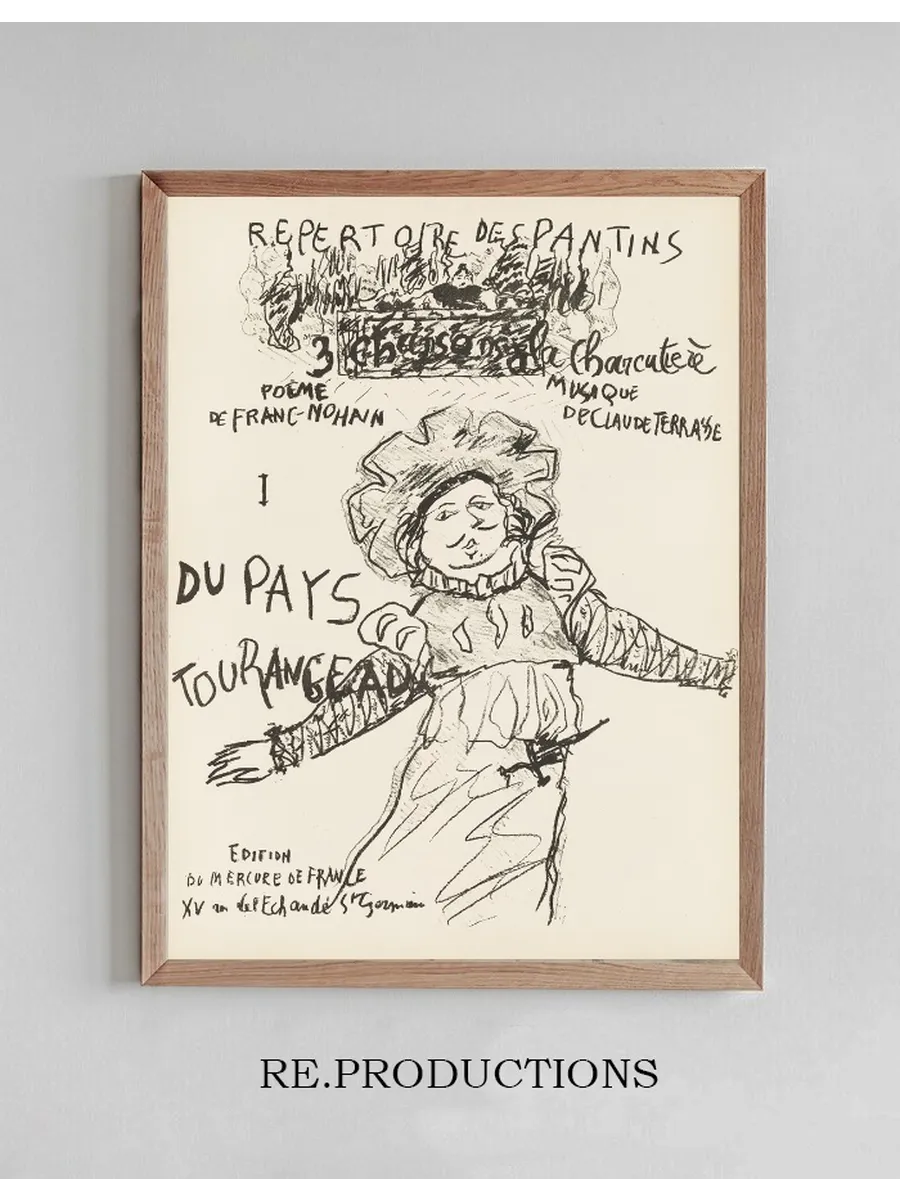 REPERTOIRE DES PANTINS
3 chansons à la charcutière
POEME
DE FRANC-NOHAIN
MUSIQUE
DE CLAUDE TERRASSE
I
DU PAYS
TOURANGEAU
EDITION
DU MERCURE DE FRANCE
XV rue de l'Echaudé St Germain
RE.PRODUCTIONS